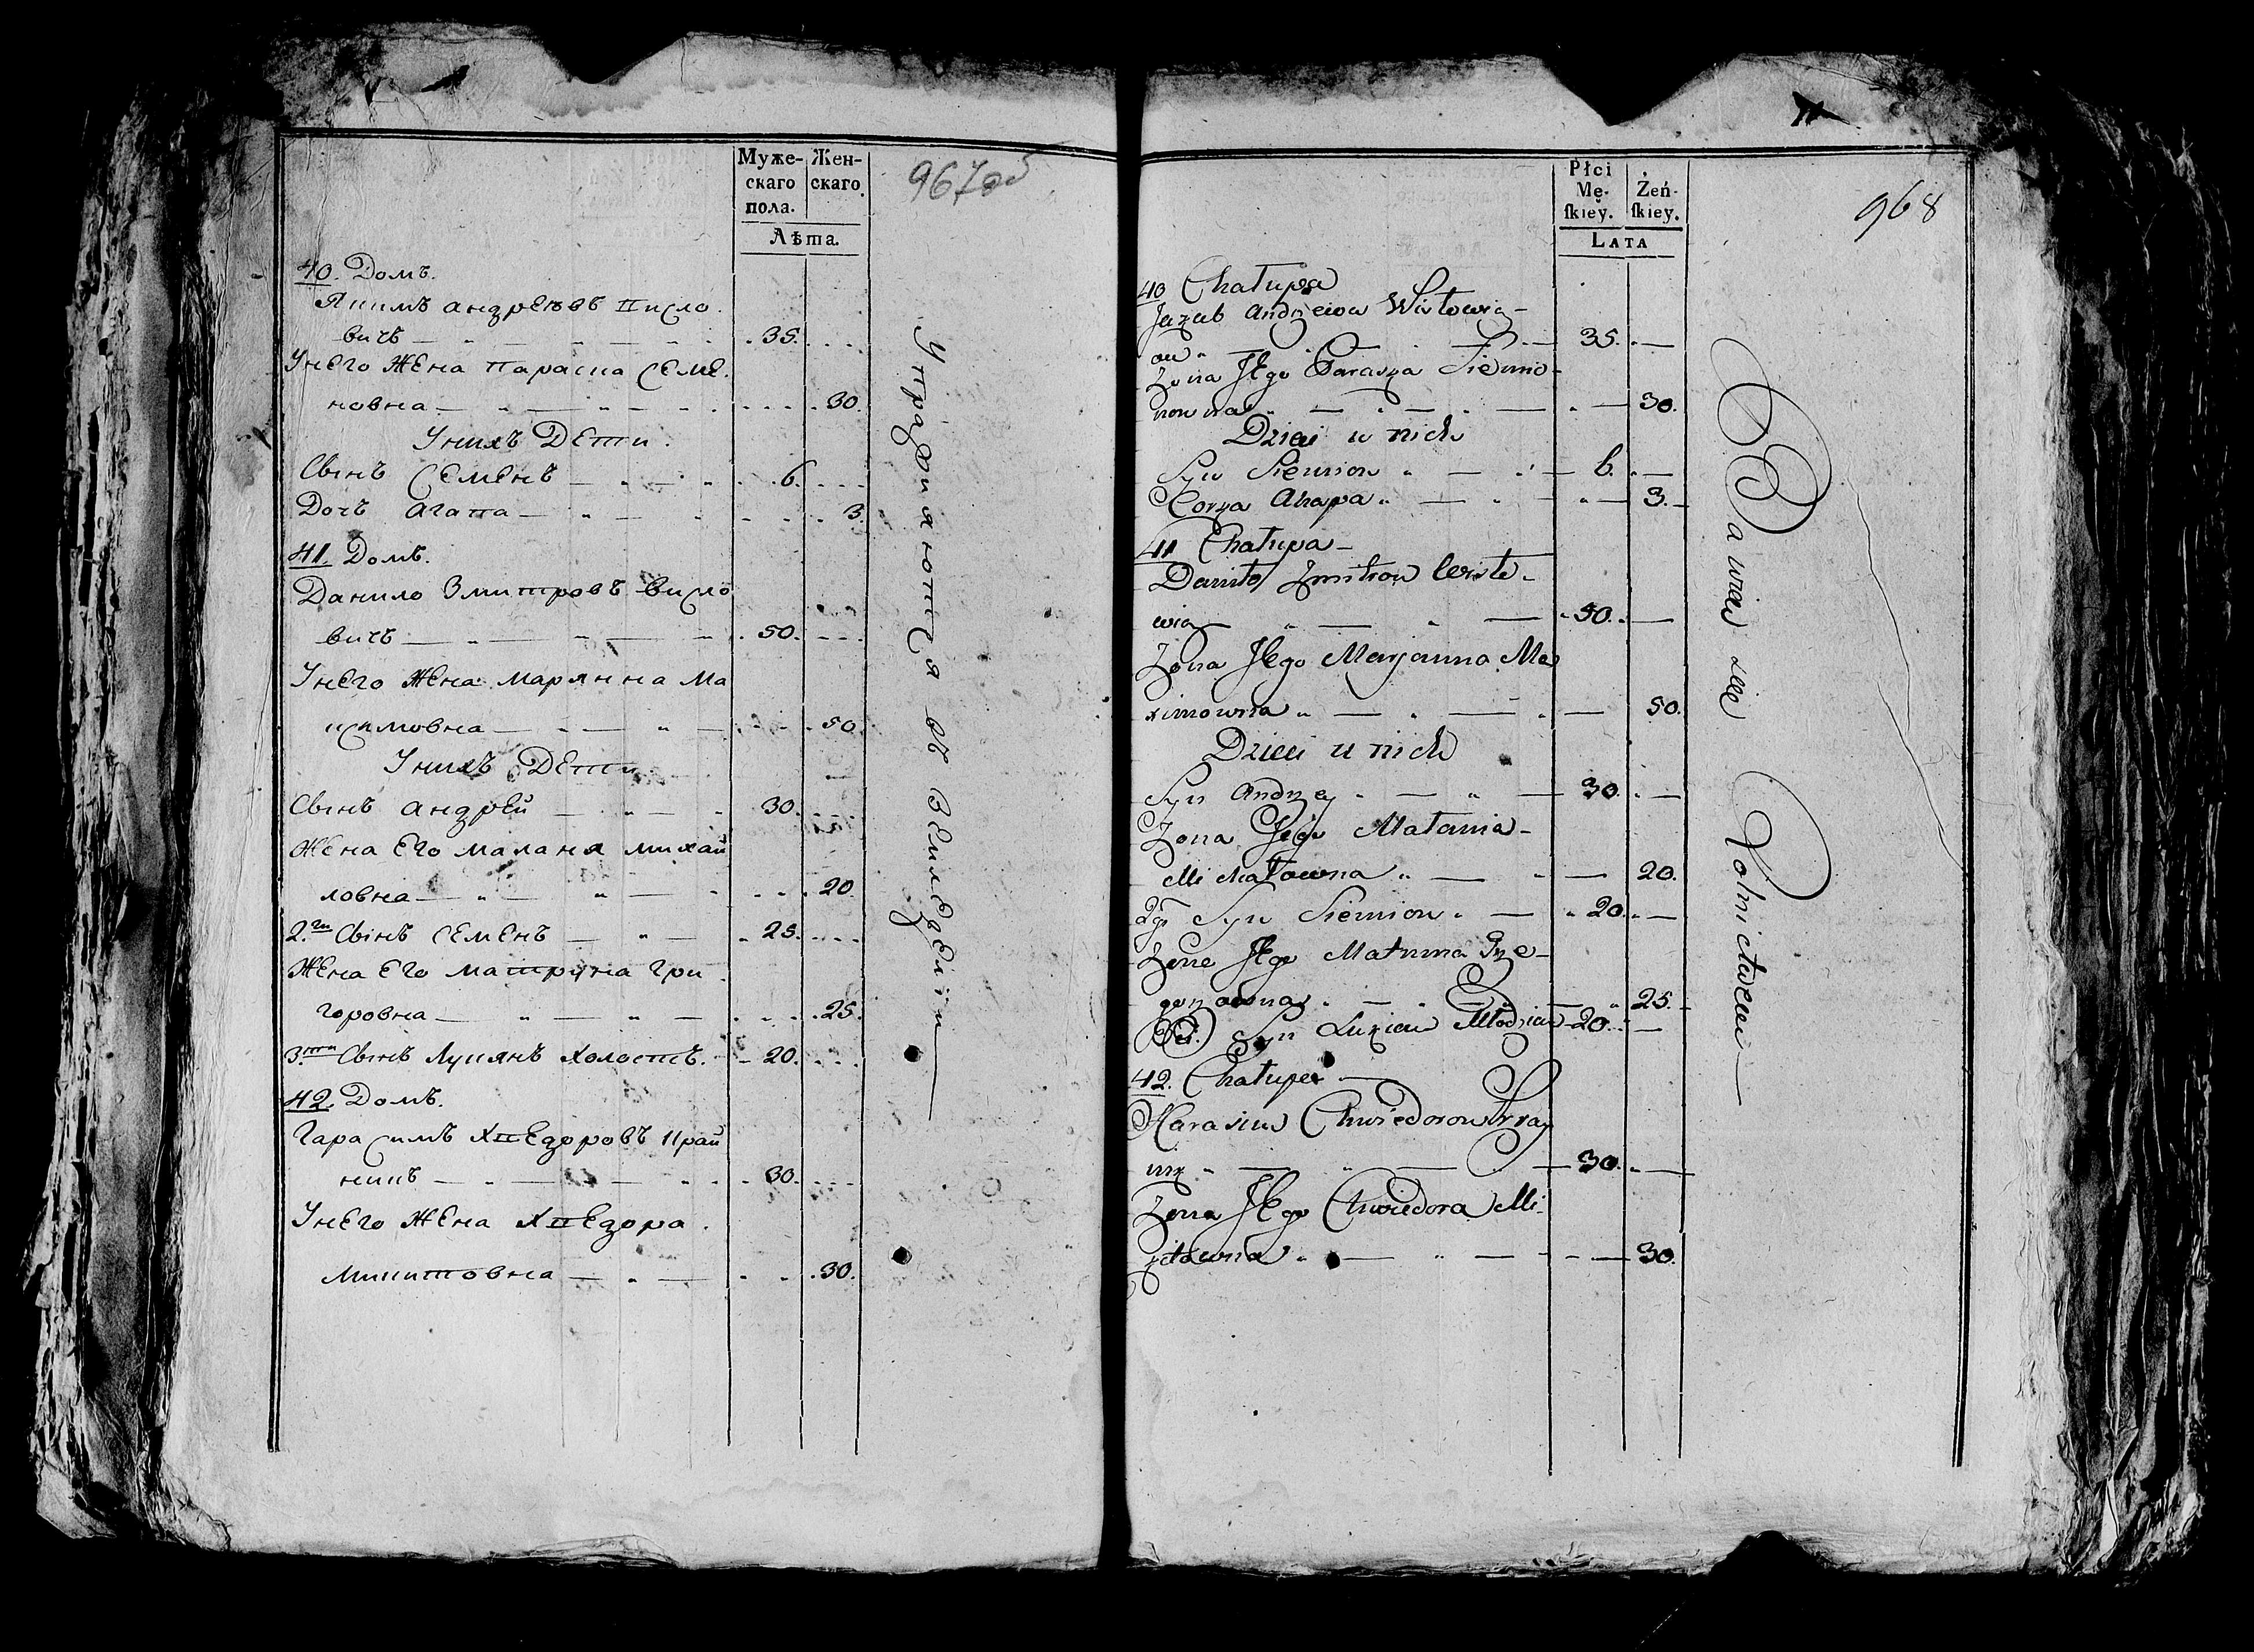 Муже-
скаго
пола.
Жен-
скаго.
Лѣта.
967об
40. Домъ.
Якимъ Андреевъ Кисло
вичъ 35.
У него Жена Параска Семе.
новна 30.
У нихъ Дети.
Сынъ Семенъ 6.
Дочь Агапа 3.
41. Домъ.
Данило Змитровъ Висло
вичъ 50.
У него Жена Марянна Ма
ксимовна 50.
У нихъ Дети
Сынъ Андрей 30.
Жена Его Маланя Михай
ловна 20
2.ги Сынъ Семенъ 25.
Жена Его Матруна Гри
горовна 25.
3.ти Сынъ Лукянъ Холостъ. 20.
42. Домъ.
Гарасимъ Хведоровъ Край
никъ 30.
У него Жена Хведора.
Микитовна 30.
Упражняются въ Земледелiи
Płci
Mę-
skiey.
Żeń-
skiey.
LATA
968
40 Chałupa
Andrzeiow
35.
Zona Jego Paraska Siemio-
nowna 30.
Dzieci u nich
Syn Siemion 6.
Corka Ahapa 3.
41 Chałupa
Daniło Zmitrow Wisło-
wicz 50.
Zona Jego Maryanna Ma
ximowna 50.
Dzieci u nich
Syn Andrzey 30.
Zona Jego Małania
Michałowna 20.
2gi Syn Siemion 20.
Zona Jego Matruna Grze-
gorzowna 25.
3ci Syn Łukian Młodzian 20.
42. Chałupa
Harasim Chwiedorow Kray
nik 30.
Zona Jego Chwiedora Mi-
kitowna 30.
Bawią się Rolnictwem